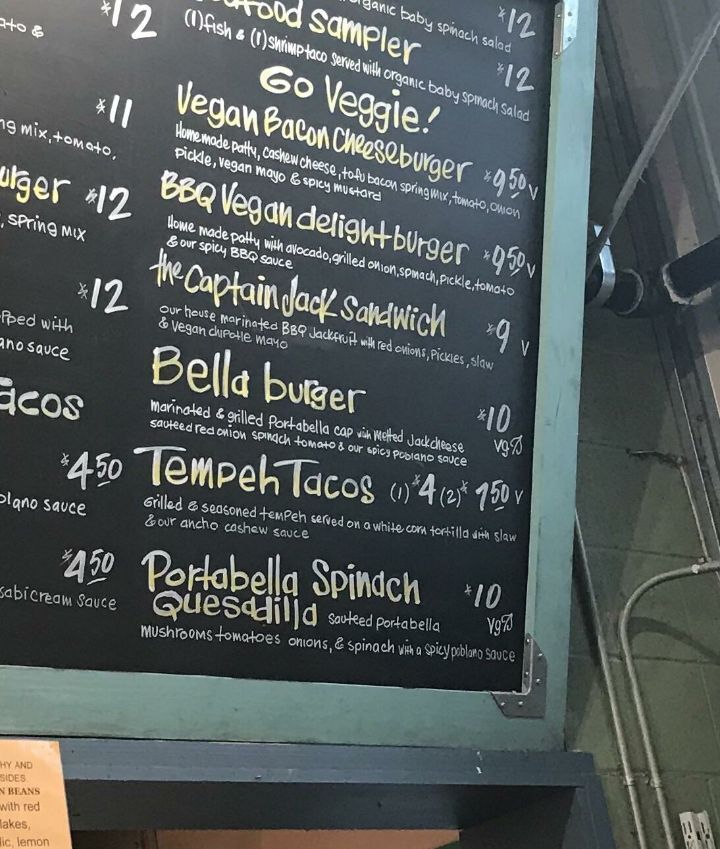 ato &
$12
$11
ng mix, tomato,
urger $12
, spring mix
$12
pped with
ano sauce
acos
$4 50
blano sauce
$4 50
sabi cream sauce
organic baby spinach salad
$12
food sampler
$12
(1) fish & (1) shrimp taco served with organic baby spinach salad
Go Veggie!
Vegan Bacon Cheeseburger $9 50 V
Homemade patty, cashew cheese, tofu bacon spring mix, tomato, onion
pickle, vegan mayo & spicy mustard
BBQ Vegan delight burger $9 50 V
Home made patty with avocado, grilled onion, spinach, pickle, tomato
& our spicy BBQ sauce
the Captain Jack Sandwich $9 V
our house marinated BBQ Jackfruit with red onions, pickles, slaw
& vegan chipotle mayo
Bella burger $10
marinated & grilled Portabella cap with melted Jack cheese vg
sauteed red onion spinach tomato & our spicy poblano sauce
Tempeh Tacos (1) $4 (2) $7 50 V
Grilled & seasoned tempeh served on a white corn tortilla with slaw
& our ancho cashew sauce
Portabella Spinach $10
Quesadilla sauteed portabella vg
mushrooms tomatoes onions, & spinach with a spicy poblano sauce
HY AND
SIDES
N BEANS
with red
lakes,
lic, lemon